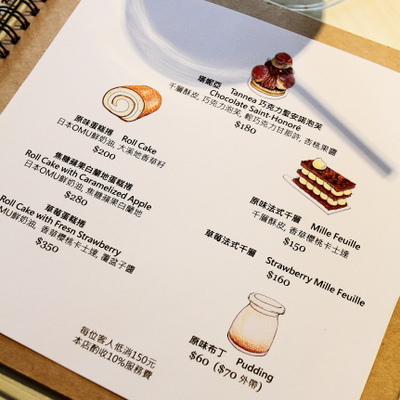 塔妮亞 Tannea 巧克力聖安諾泡芙
Chocolate Saint-Honoré
千層酥皮, 巧克力泡芙, 輕巧克力甘那許, 杏桃果醬
$180
原味蛋糕捲 Roll Cake
日本OMU鮮奶油, 大溪地香草籽
$200
焦糖蘋果白蘭地蛋糕捲
Roll Cake with Caramelized Apple
日本OMU鮮奶油, 焦糖蘋果白蘭地
$280
草莓蛋糕捲
Roll Cake with Fresn Strawberry
OMU鮮奶油, 香草櫻桃卡士達, 覆盆子醬
$350
原味法式千層 Mille Feuille
千層酥皮, 香草櫻桃卡士達
$150
草莓法式千層 Strawberry Mille Feuille
$160
原味布丁 Pudding
$60 ($70 外帶)
每位客人低消150元
本店酌收10%服務費